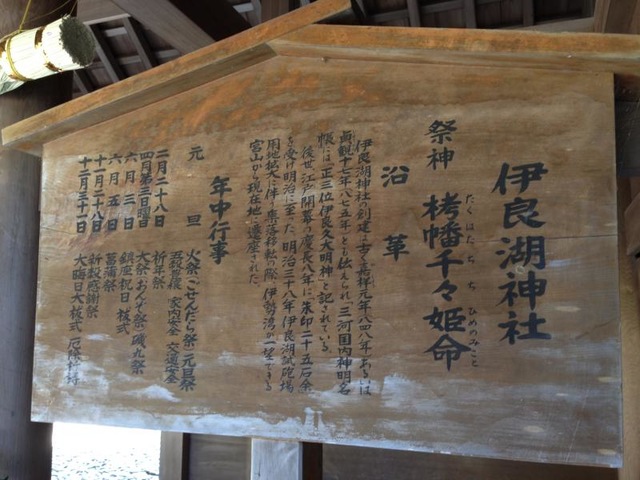 伊良湖神社
祭神 栲幡千々姫命
たくはたちぢひめのみこと
沿革
伊良湖神社の創建は古く嘉祥元年八四八年あるいは
貞観十七年八七五年とも伝えられ、三河国内神明名
帳には正三位伊良久大明神と記されている。
後世江戸開幕の慶長八年に朱印二十五石余
を受け明治に至った。明治三十八年伊良湖試砲場
用地拡大に伴う集落移転の際、伊勢湾が一望できる
宮山から現在地へ遷座された。
年中行事
元旦 火祭 ごせんだら祭 元旦祭
家内安全 交通安全
二月二十八日 祈年祭
四月第三日曜日 大祭 おんぞ祭 磯丸祭
六月三日 鎮座祝日 祓式
六月五日 菖蒲祭
十一月二十八日 新穀感謝祭
十二月三十一日 大晦日大祓式